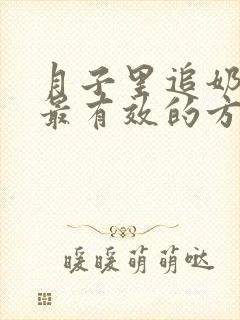 月子里追奶
最有效的方
暖暖萌萌哒